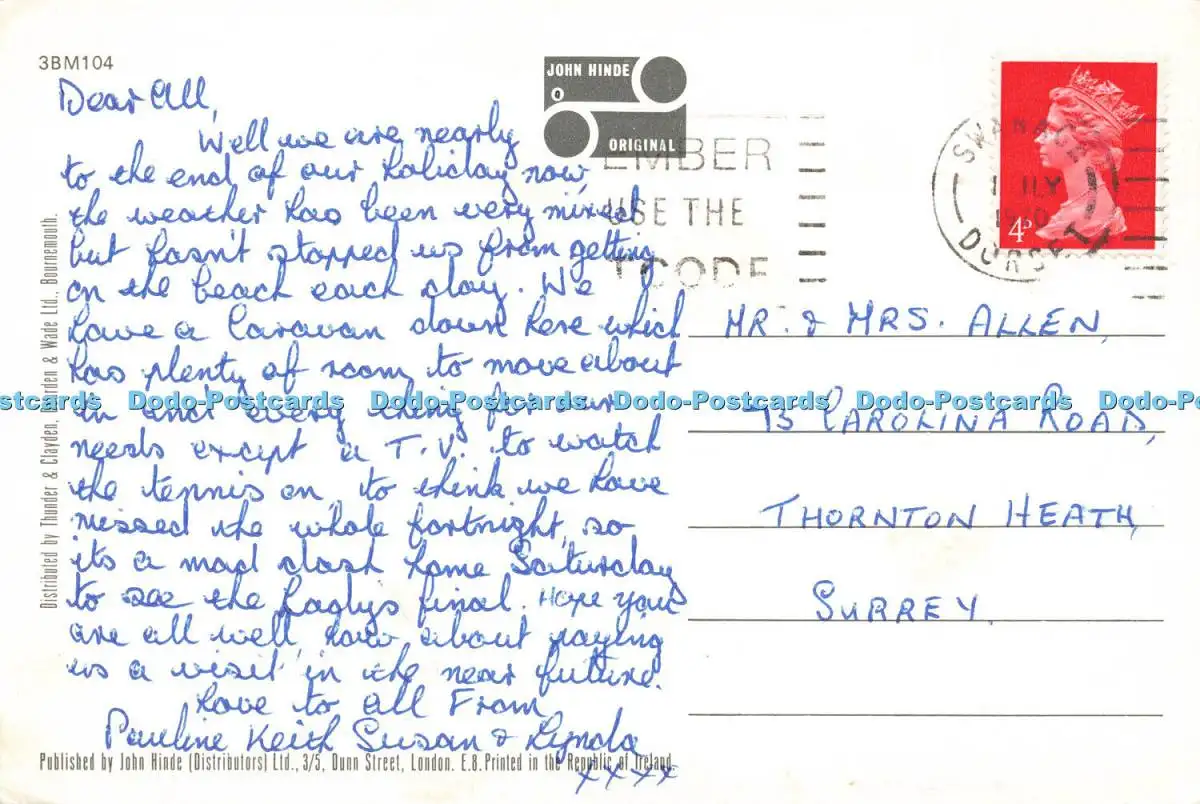 3BM104
JOHN HINDE
ORIGINAL
EMBER
USE THE
TCODE
SWANAGE
1 JLY
1970
DORSET
4P
Dear All,
Well we are nearly
to the end of our holiday now,
the weather has been very mixed
but hasn't stopped us from getting
on the beach each day. We
have a Caravan down here which
has plenty of room to move about
in and every thing for our
needs except a T.V. to watch
the tennis on, to think we have
missed the whole fortnight, so
its a mad dash home Saturday
to see the Ladys final. Hope you
are all well, how about paying
us a visit in the near future.
Love to all From
Pauline Keith Susan & Lynda
xxxx
MR. & MRS. ALLEN,
75 CAROLINA ROAD,
THORNTON HEATH,
SURREY.
Distributed by Thunder & Clayden, Harden & Wade Ltd., Bournemouth.
Published by John Hinde (Distributors) Ltd., 3/5, Dunn Street, London. E.8. Printed in the Republic of Ireland.
stcards Dodo-Postcards Dodo-Postcards Dodo-Postcards Dodo-Postcards Dodo-Postcards Dodo-Po